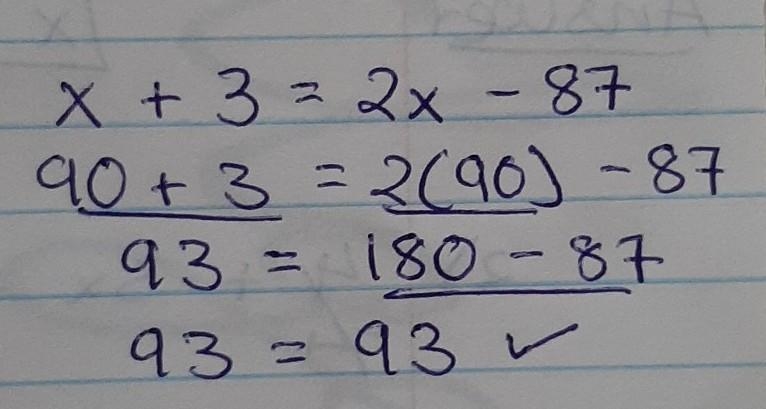 x + 3 = 2x - 87
90 + 3 = 2(90) - 87
93 = 180 - 87
93 = 93 ✓